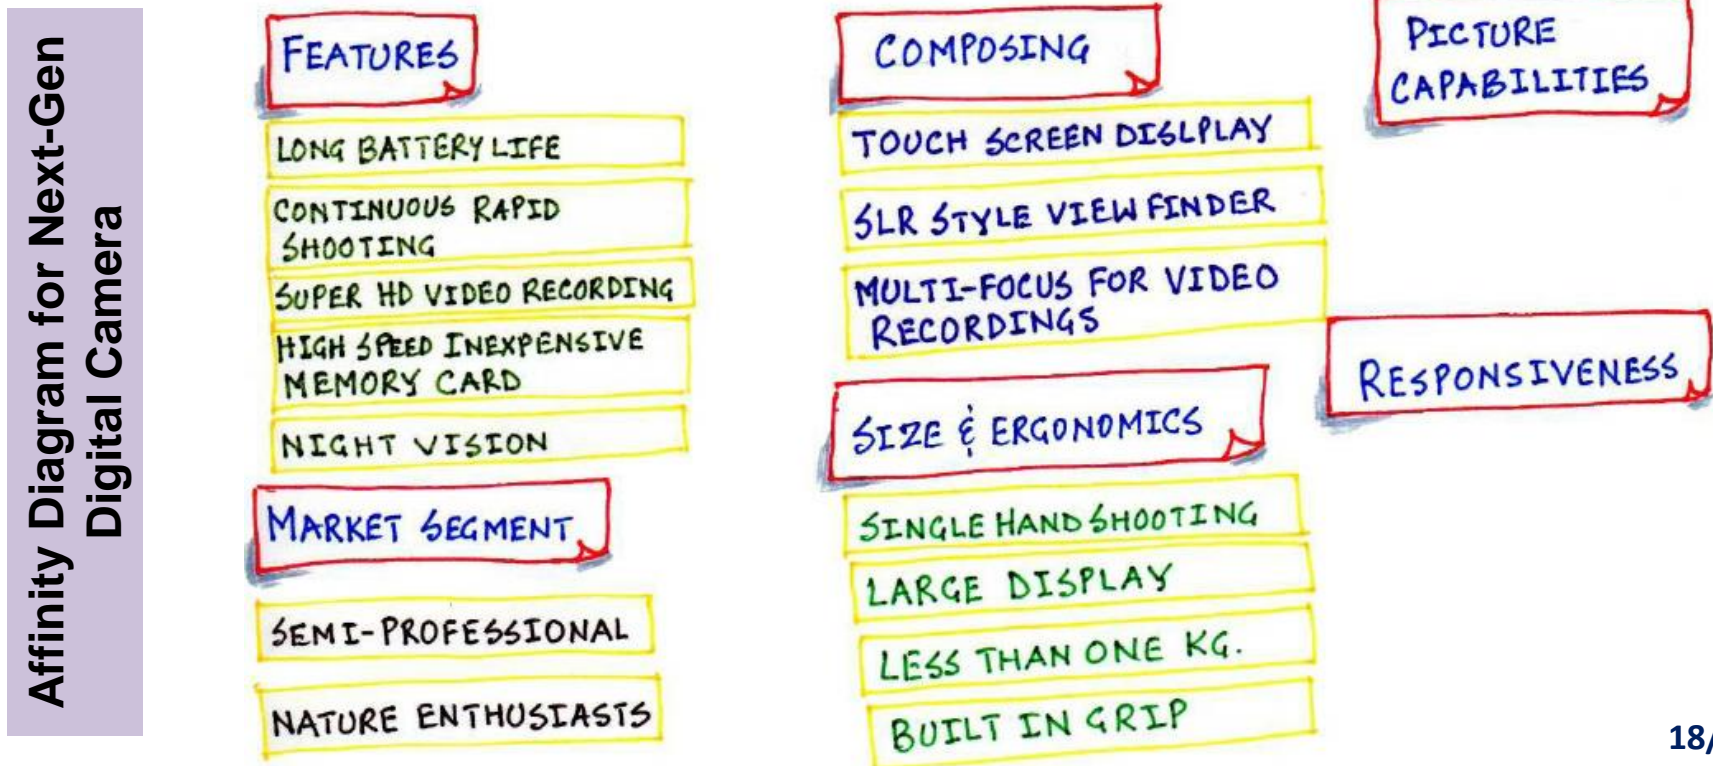 Affinity Diagram for Next-Gen
Digital Camera
FEATURES
LONG BATTERY LIFE
CONTINUOUS RAPID
SHOOTING
SUPER HD VIDEO RECORDING
HIGH SPEED INEXPENSIVE
MEMORY CARD
NIGHT VISION
MARKET SEGMENT
SEMI-PROFESSIONAL
NATURE ENTHUSIASTS
COMPOSING
TOUCH SCREEN DISLPLAY
SLR STYLE VIEW FINDER
MULTI-FOCUS FOR VIDEO
RECORDINGS
SIZE & ERGONOMICS
SINGLE HAND SHOOTING
LARGE DISPLAY
LESS THAN ONE KG.
BUILT IN GRIP
PICTURE
CAPABILITIES
RESPONSIVENESS
18/